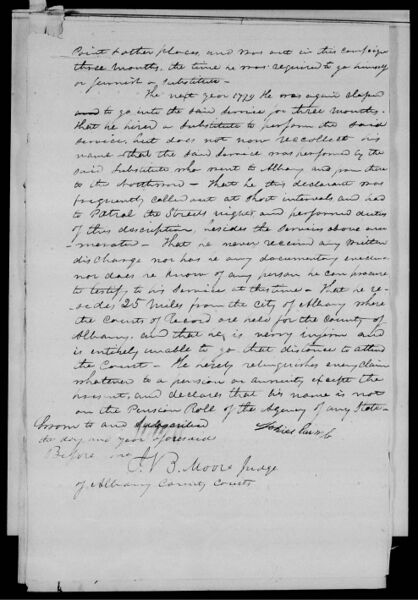 Point & other places, and was out in this campaign
three months, the time he was required to go himself
or furnish a substitute –
The next year 1779 He was again classed
and to go into the said service for three months.
that he hired a substitute to perform the said
service, but does not now recollect his
name – that the said service was performed by the
said substitute who went to Albany and from there
to the Northward – That he this declarant was
frequently called out at short intervals and had
to Patrol the Streets nights and performed duties
of this description, besides the services above enu-
merated – That he never received any written
discharge nor has he any documentary evidence
nor does he know of any person he can procure
to testify to his service at this time – That he re-
sides 25 Miles from the City of Albany where
the Courts of Record are held for the County of
Albany, and that he is verry infirm and
is entirely unable to go that distance to attend
the Court – He hereby relinquishes every Claim
whatever to a pension or annuity except the
present, and declares that his name is not
on the Pension Roll of the Agency of any State –
Sworn to and subscribed
the day and year aforesaid
Before me
J. B. Moore Judge
of Albany County Courts